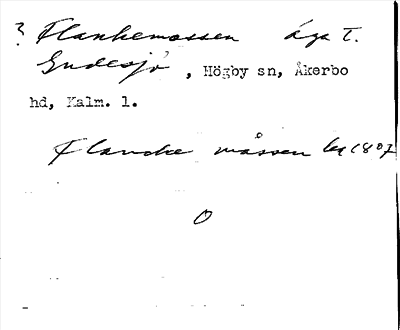 ? Flankemossen äga t.
Gudesjö, Högby sn, Åkerbo
hd, Kalm. l.
Flancke måssen 1807
O